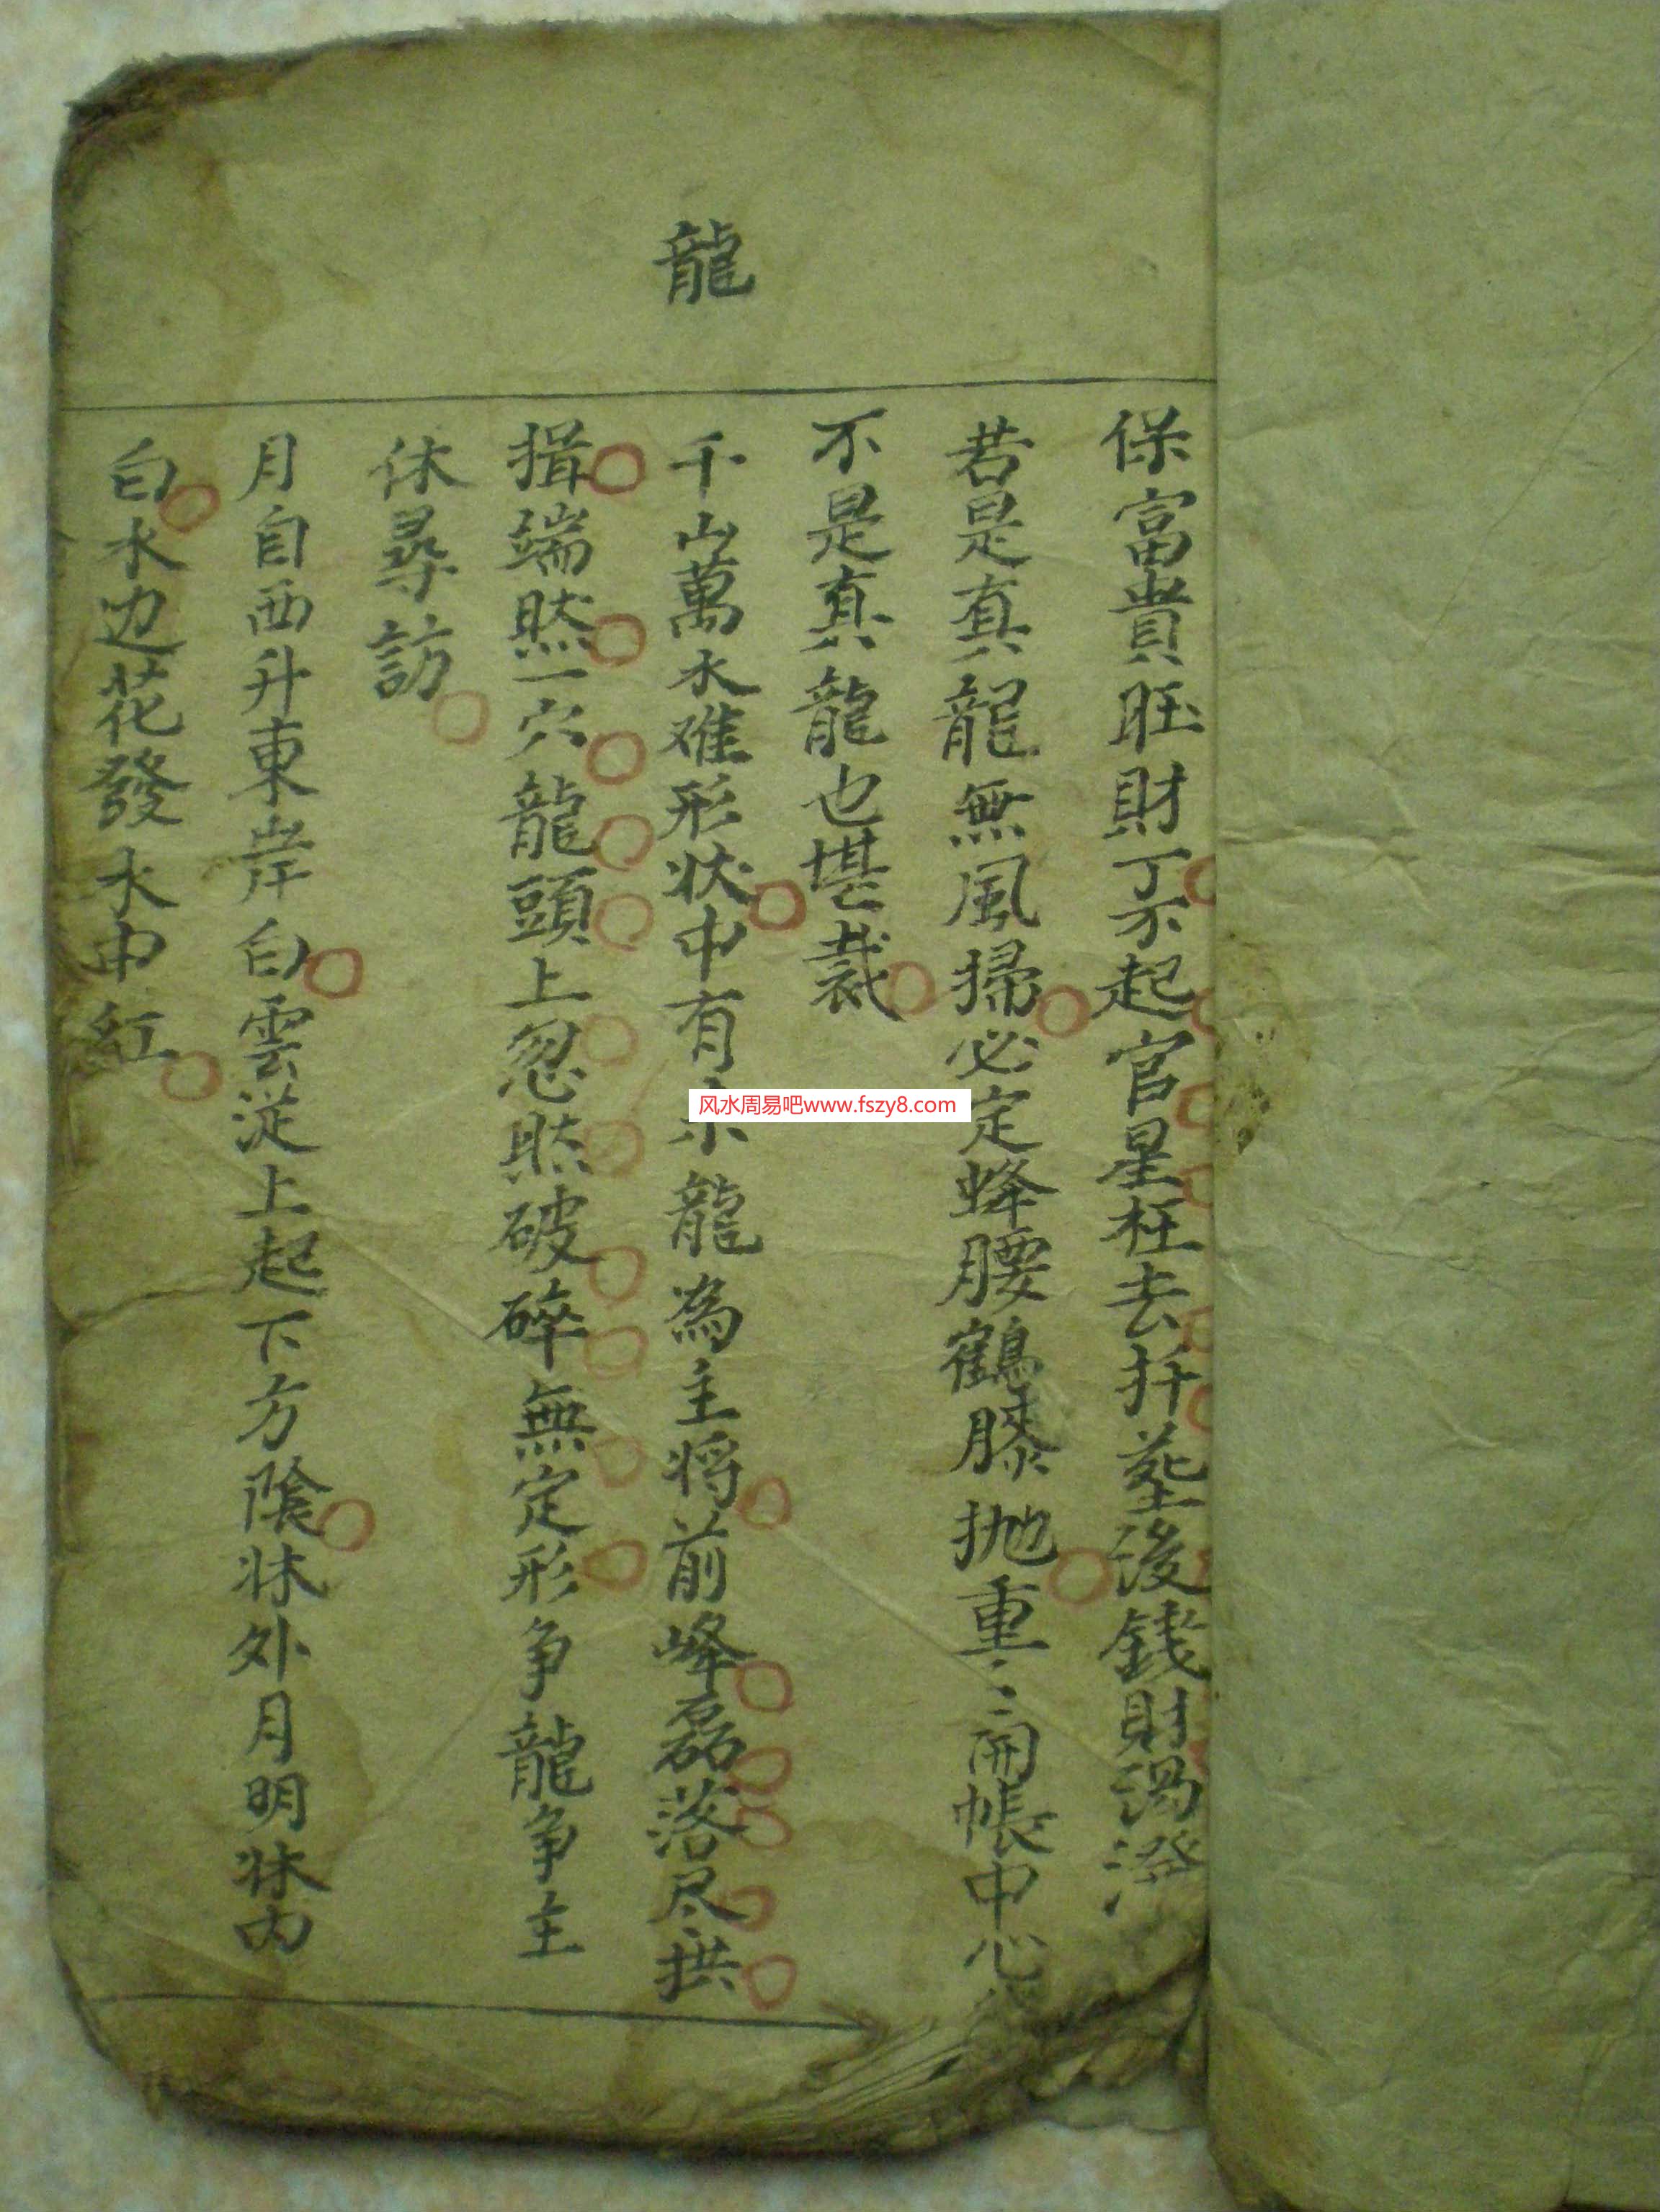 龍
保富貴旺財丁不起官星枉去扦塟後錢財渴潑
若是真龍無風掃必定蜂腰鶴膝抛重〻開帳中心
不是真龍也堪裁
千山萬水难形状中有 龍為主将前峰磊落尽拱
揖端然一穴龍頭上忽然破碎無定形争龍争主
休尋訪
月自西升東岸白雲従上起下方陰牀外月明牀内
白水边花發水中紅
风水周易吧www.fszy8.com